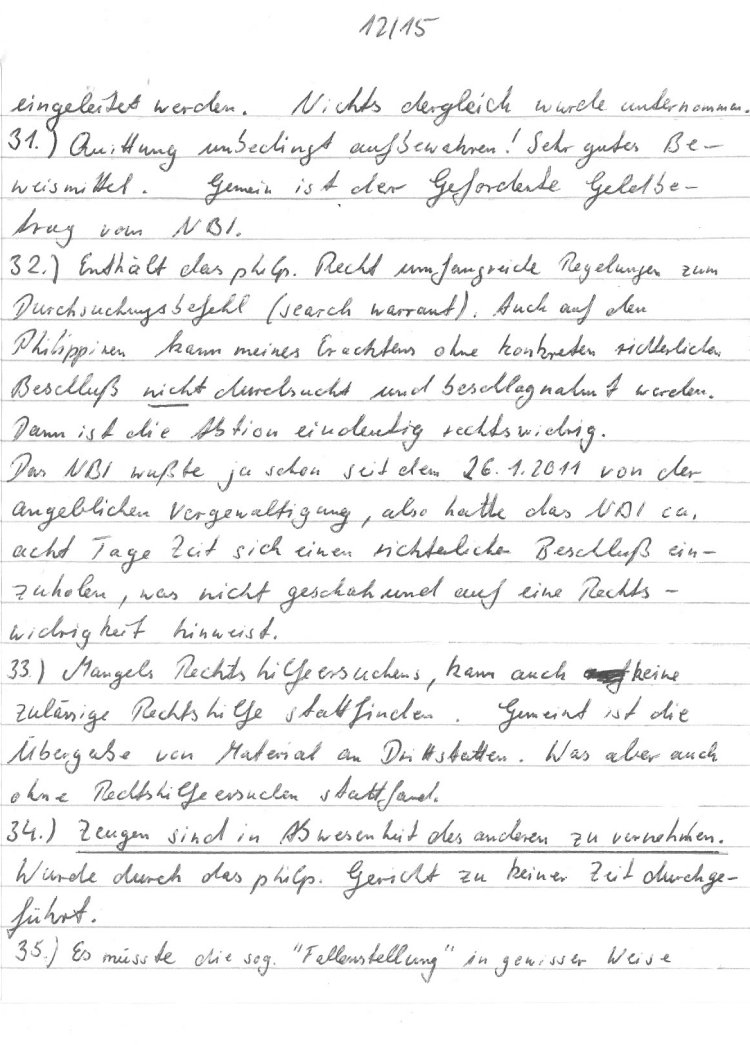 12/15
eingeleitet werden. Nichts dergleich wurde unternommen.
31.) Quittung unbedingt aufbewahren! Sehr gutes Be-
weismittel. Gemein ist der Geforderte Geldbe-
trag vom NBI.
32.) Enthält das philp. Recht umfangreiche Regelungen zum
Durchsuchungsbefehl (search warrant). Auch auf den
Philippinen kann meines Erachtens ohne konkreten richterlichen
Beschluß nicht durchsucht und beschlagnahmt werden.
Dann ist die Aktion eindeutig rechtswidrig.
Das NBI wußte ja schon seit dem 26.1.2011 von der
angeblichen Vergewaltigung, also hatte das NBI ca.
acht Tage Zeit sich einen richterlichen Beschluß ein-
zuholen, was nicht geschah und auf eine Rechts-
widrigkeit hinweist.
33.) Mangels Rechtshilfeersuchens, kann auch keine
zulässige Rechtshilfe stattfinden. Gemeint ist die
Übergabe von Material an Drittstatten. Was aber auch
ohne Rechtshilfeersuchen stattfand.
34.) Zeugen sind in Abwesenheit des anderen zu vernehmen.
Wurde durch das philp. Gericht zu keiner Zeit durchge-
führt.
35.) Es müsste die sog. "Fallenstellung" in gewisser Weise